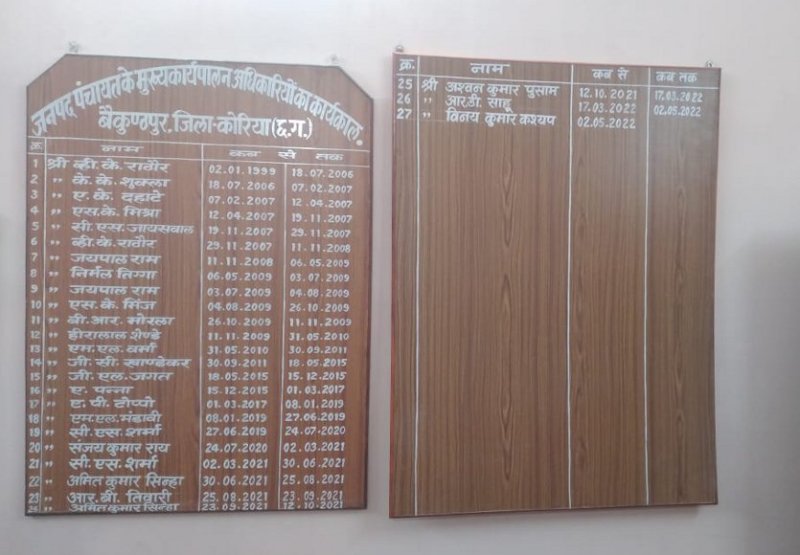 जनपद पंचायत के मुख्यकार्यपालन अधिकारियों का कार्यकाल.
बैकुण्ठपुर, जिला-कोरिया (छ.ग.)
क्र. नाम कब से तक
1 श्री व्ही.के. राठौर 02.01.1999 18.07.2006
2 " के.के. शुक्ला 18.07.2006 07.02.2007
3 " ए.के. दहाटे 07.02.2007 12.04.2007
4 " एस.के. मिश्रा 12.04.2007 19.11.2007
5 " सी.एस. जायसवाल 19.11.2007 29.11.2007
6 " व्ही.के. राठौर 29.11.2007 11.11.2008
7 " जयपाल राम 11.11.2008 06.05.2009
8 " निर्मल तिग्गा 06.05.2009 03.07.2009
9 " जयपाल राम 03.07.2009 04.08.2009
10 " एस.के. मिंज 04.08.2009 26.10.2009
11 " बी.आर. मोरला 26.10.2009 11.11.2009
12 " हीरालाल शेण्डे 11.11.2009 31.05.2010
13 " एम.एल. वर्मा 31.05.2010 30.09.2011
14 " जी.सी. खाण्डेकर 30.09.2011 18.05.2015
15 " जी.एल. जगत 18.05.2015 15.12.2015
16 " ए. पन्ना 15.12.2015 01.03.2017
17 " ए.पी. टोप्पो 01.03.2017 08.01.2019
18 " एम.एल. मंडावी 08.01.2019 27.06.2019
19 " सी.एस. शर्मा 27.06.2019 24.07.2020
20 " संजय कुमार राय 24.07.2020 02.03.2021
21 " सी.एस. शर्मा 02.03.2021 30.06.2021
22 " अमित कुमार सिन्हा 30.06.2021 25.08.2021
23 " आर.बी. तिवारी 25.08.2021 23.09.2021
24 " अमित कुमार सिन्हा 23.09.2021 12.10.2021
क्र. नाम कब से कब तक
25 श्री अश्वन कुमार पुसाम 12.10.2021 17.03.2022
26 " आर.डी. साहू 17.03.2022 02.05.2022
27 " विनय कुमार कश्यप 02.05.2022